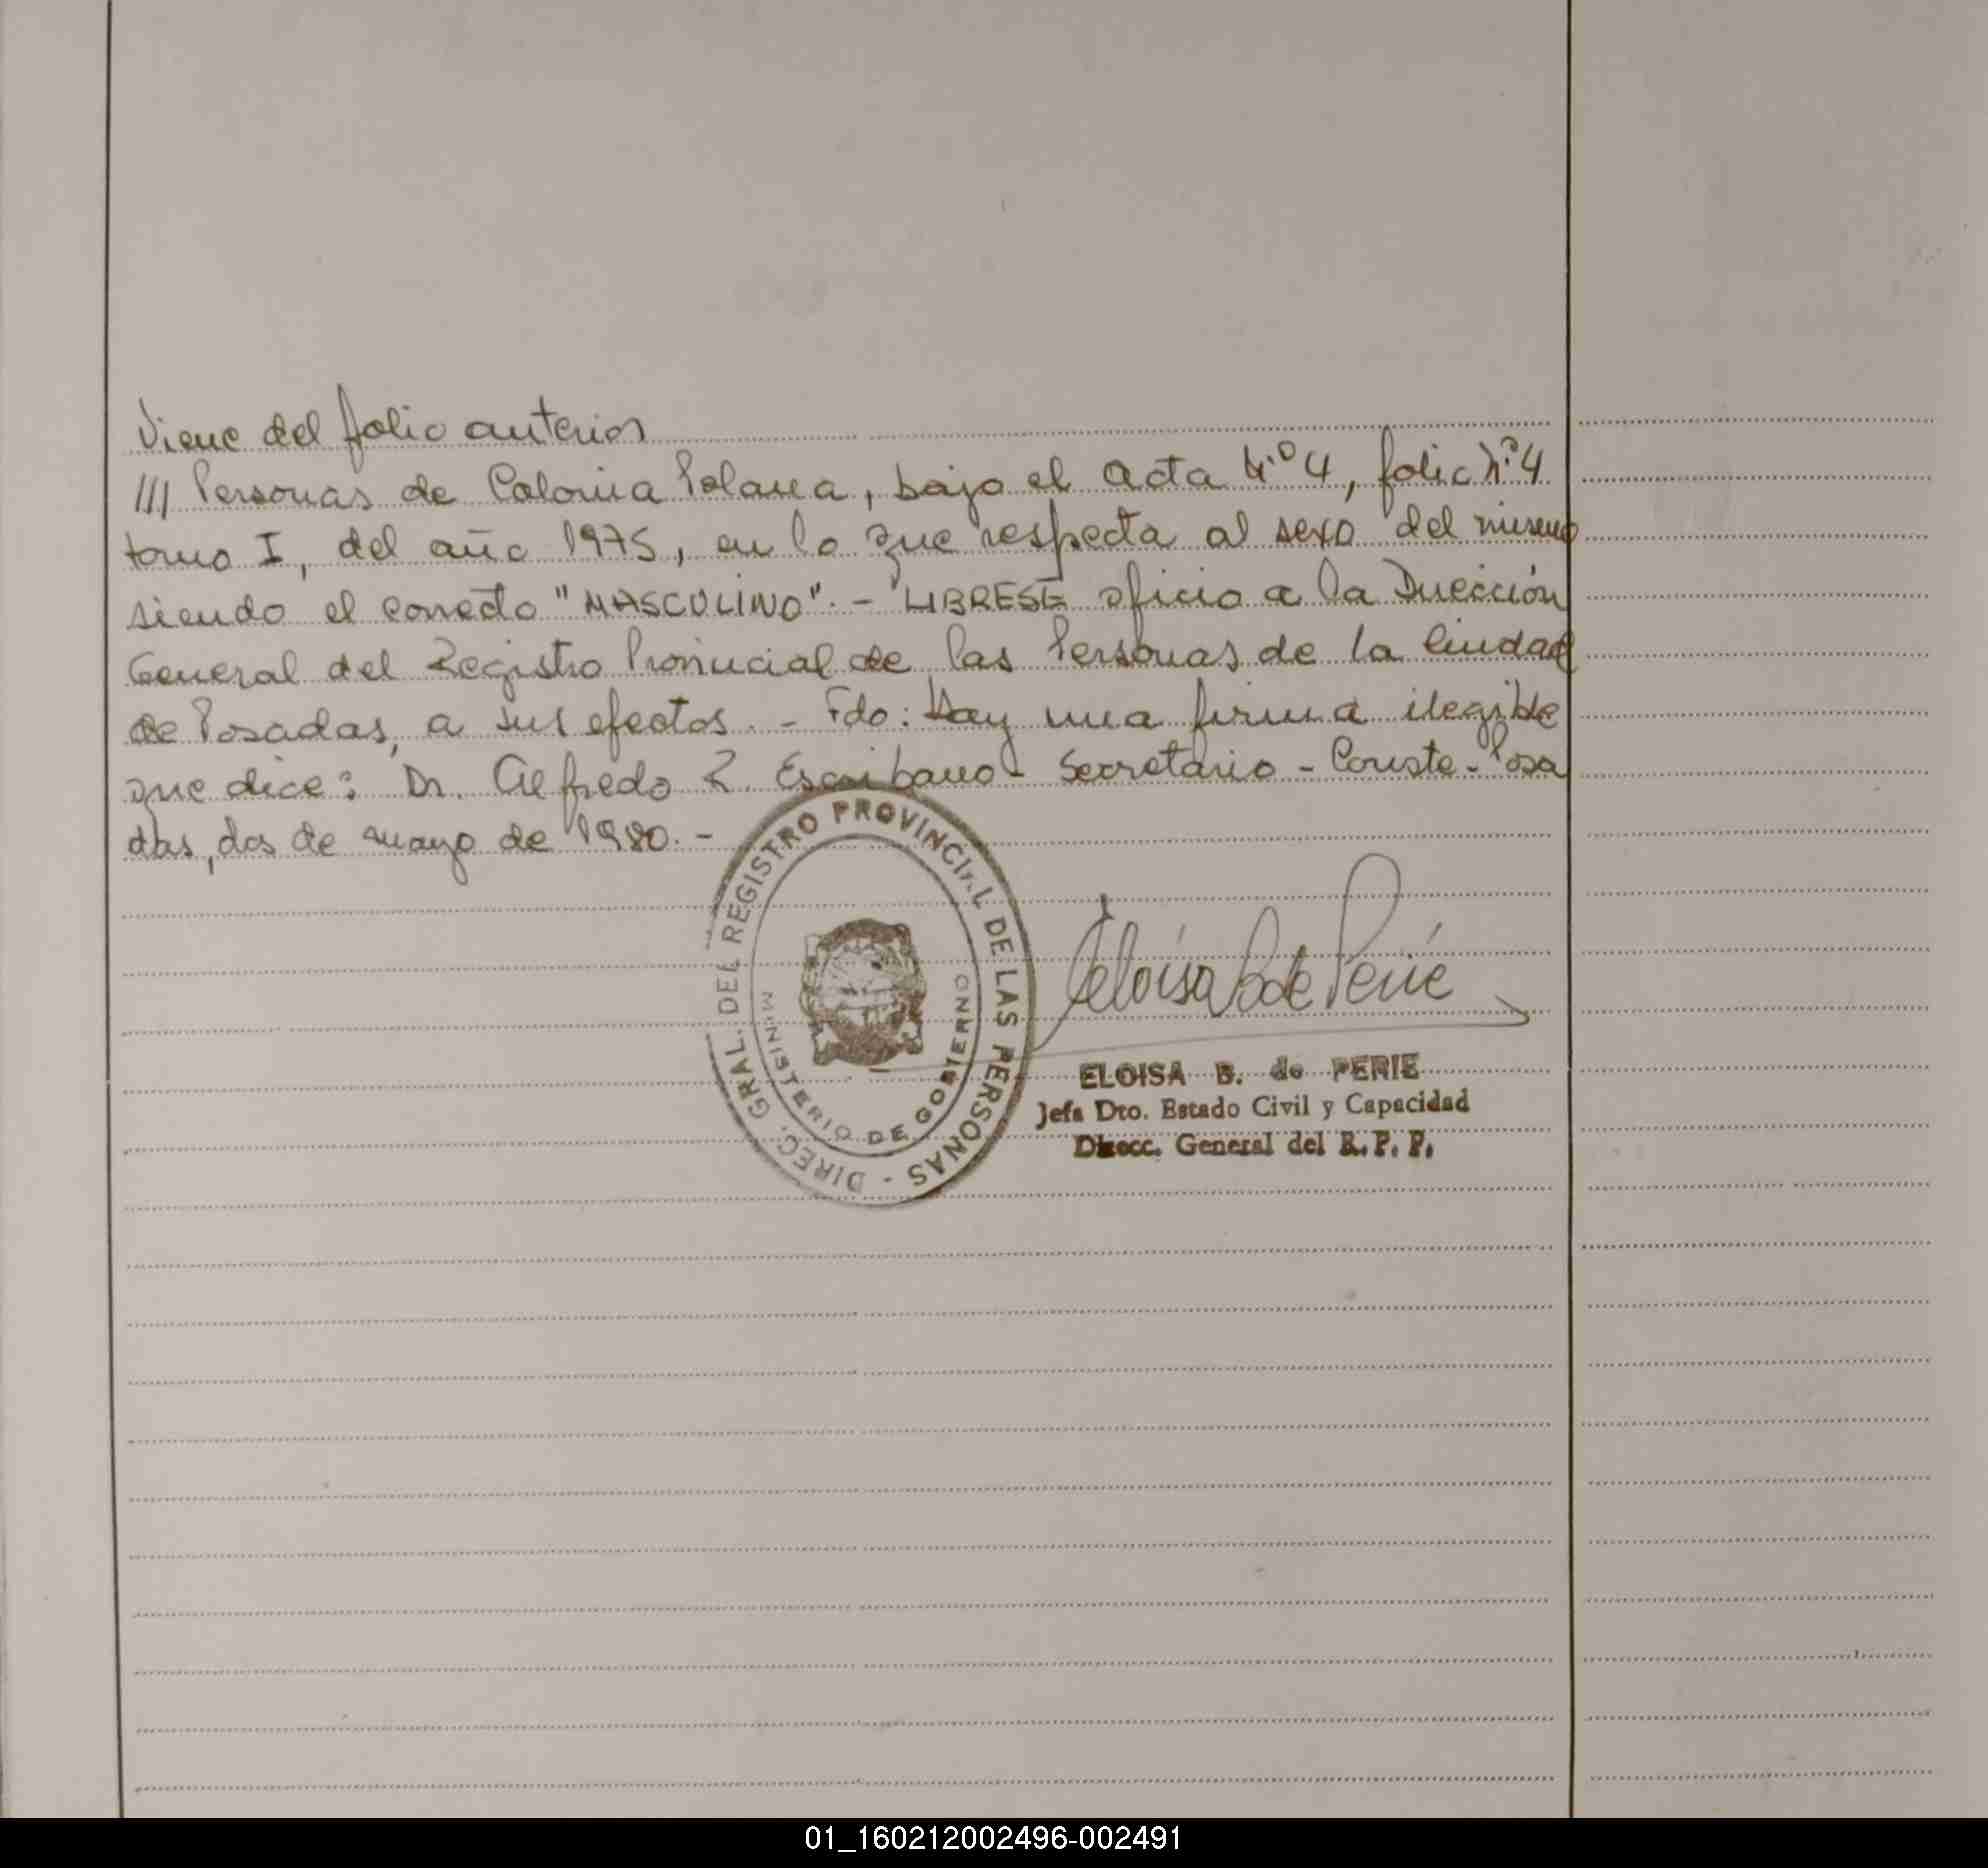 Viene del folio anterior
/// Personas de Colonia Polana, bajo el acta N.º 4, folio N.º 4
tomo I, del año 1975, en lo que respecta al sexo del mismo
siendo el correcto "MASCULINO". - LIBRESE oficio a la Dirección
General del Registro Provincial de las Personas de la Ciudad
de Posadas, a sus efectos. - Fdo: Hay una firma ilegible
que dice: Dr. Alfredo R. Escribano - Secretario - Conste - Posa
das, dos de mayo de 1980. -
DIREC. GRAL. DEL REGISTRO PROVINCIAL DE LAS PERSONAS -
MINISTERIO DE GOBIERNO
Eloísa B de Perié
ELOISA B. de PERIE
Jefa Dto. Estado Civil y Capacidad
Direcc. General del R. P. P.
01_160212002496-002491